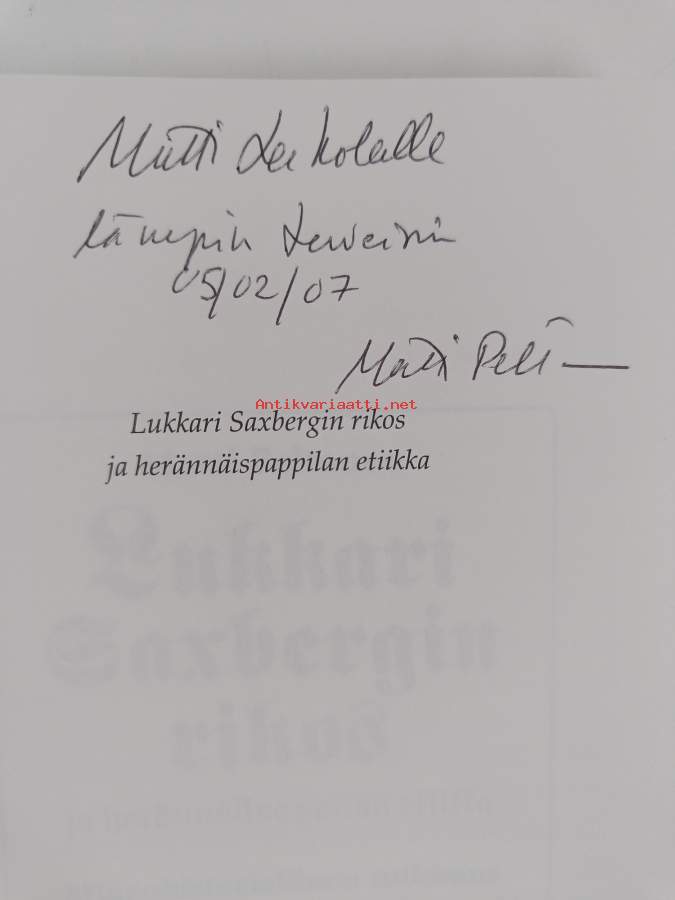 Matti Leikolalle
lämpin terveisin
05/02/07
Matti Pel
Antikvariaatti.net
Lukkari Saxbergin rikos
ja herännäispappilan etiikka
Lukkari
Saxbergin
rikos